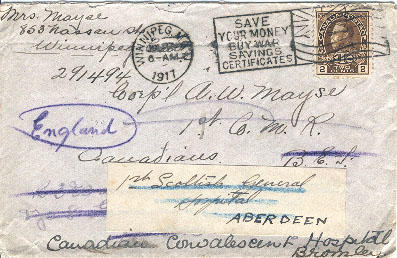 Mrs. Mayse
853 Nassau St
Winnipeg
WINNIPEG, MAN.
6-AM
1917
SAVE
YOUR MONEY
BUY WAR
SAVINGS
CERTIFICATES
2 2
291494
Corp'l A. W. Mayse
1st C. M. R.
England
Canadians
B.E.F.
1st Scottish General
Hospital
ABERDEEN
Canadian Convalescent Hospital
Bromley